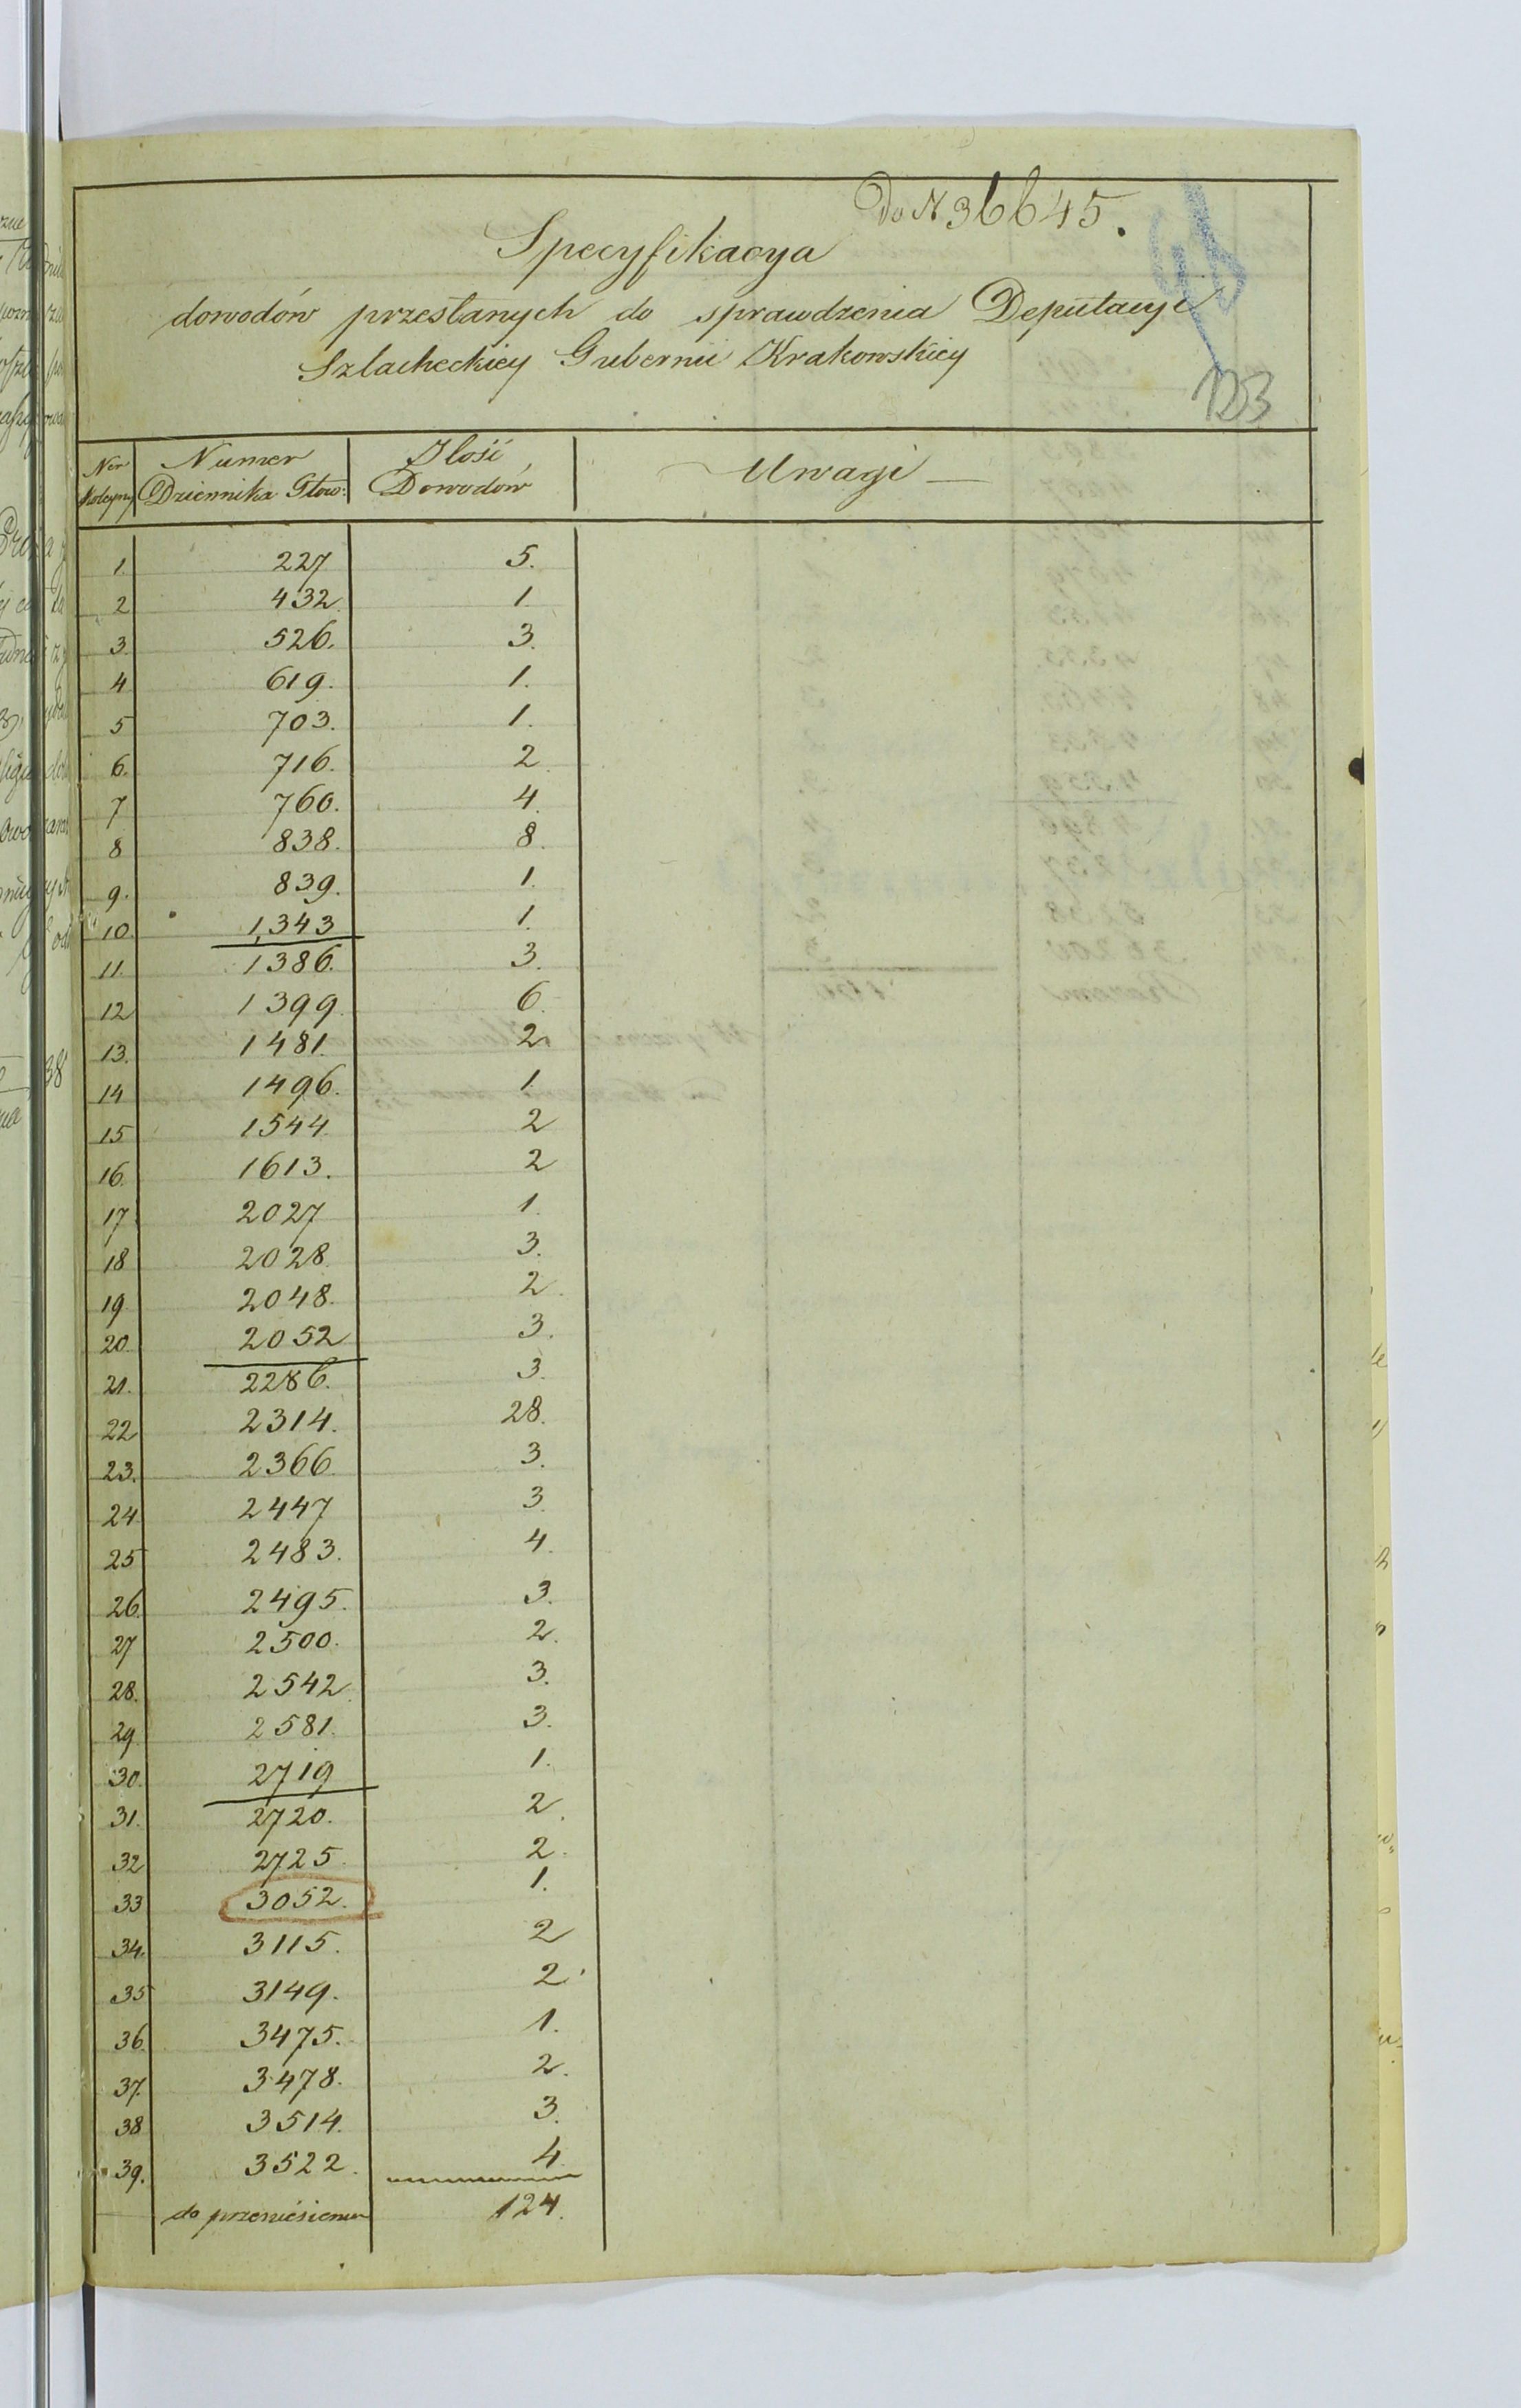 Do N 36645.
Specyfikacya
dowodów przesłanych do sprawdzenia Deputacyi
Szlacheckiey Gubernii Krakowskiey
123
Ner Kolejny Numer Dziennika Głow: Ilość Dowodów Uwagi
1. 227 5.
2 432. 1.
3. 526. 3.
4 619. 1.
5 703. 1.
6. 716. 2.
7 760. 4.
8 838. 8.
9. 839. 1.
10. 1,343 1.
11. 1386. 3.
12 1399. 6.
13. 1481. 2
14 1496. 1.
15 1544. 2
16. 1613. 2
17 2027 1.
18 2028. 3.
19. 2048. 2.
20. 2052 3.
21. 2286. 3.
22 2314. 28.
23. 2366. 3.
24 2447 3.
25 2483. 4.
26. 2495. 3.
27 2500. 2.
28. 2542. 3.
29. 2581. 3.
30. 2719 1.
31. 2720. 2.
32 2725. 2.
33 3052. 1.
34. 3115. 2
35 3149. 2.
36. 3475. 1.
37. 3478. 2.
38 3514. 3.
39. 3522. 4.
do przeniesienia 124.